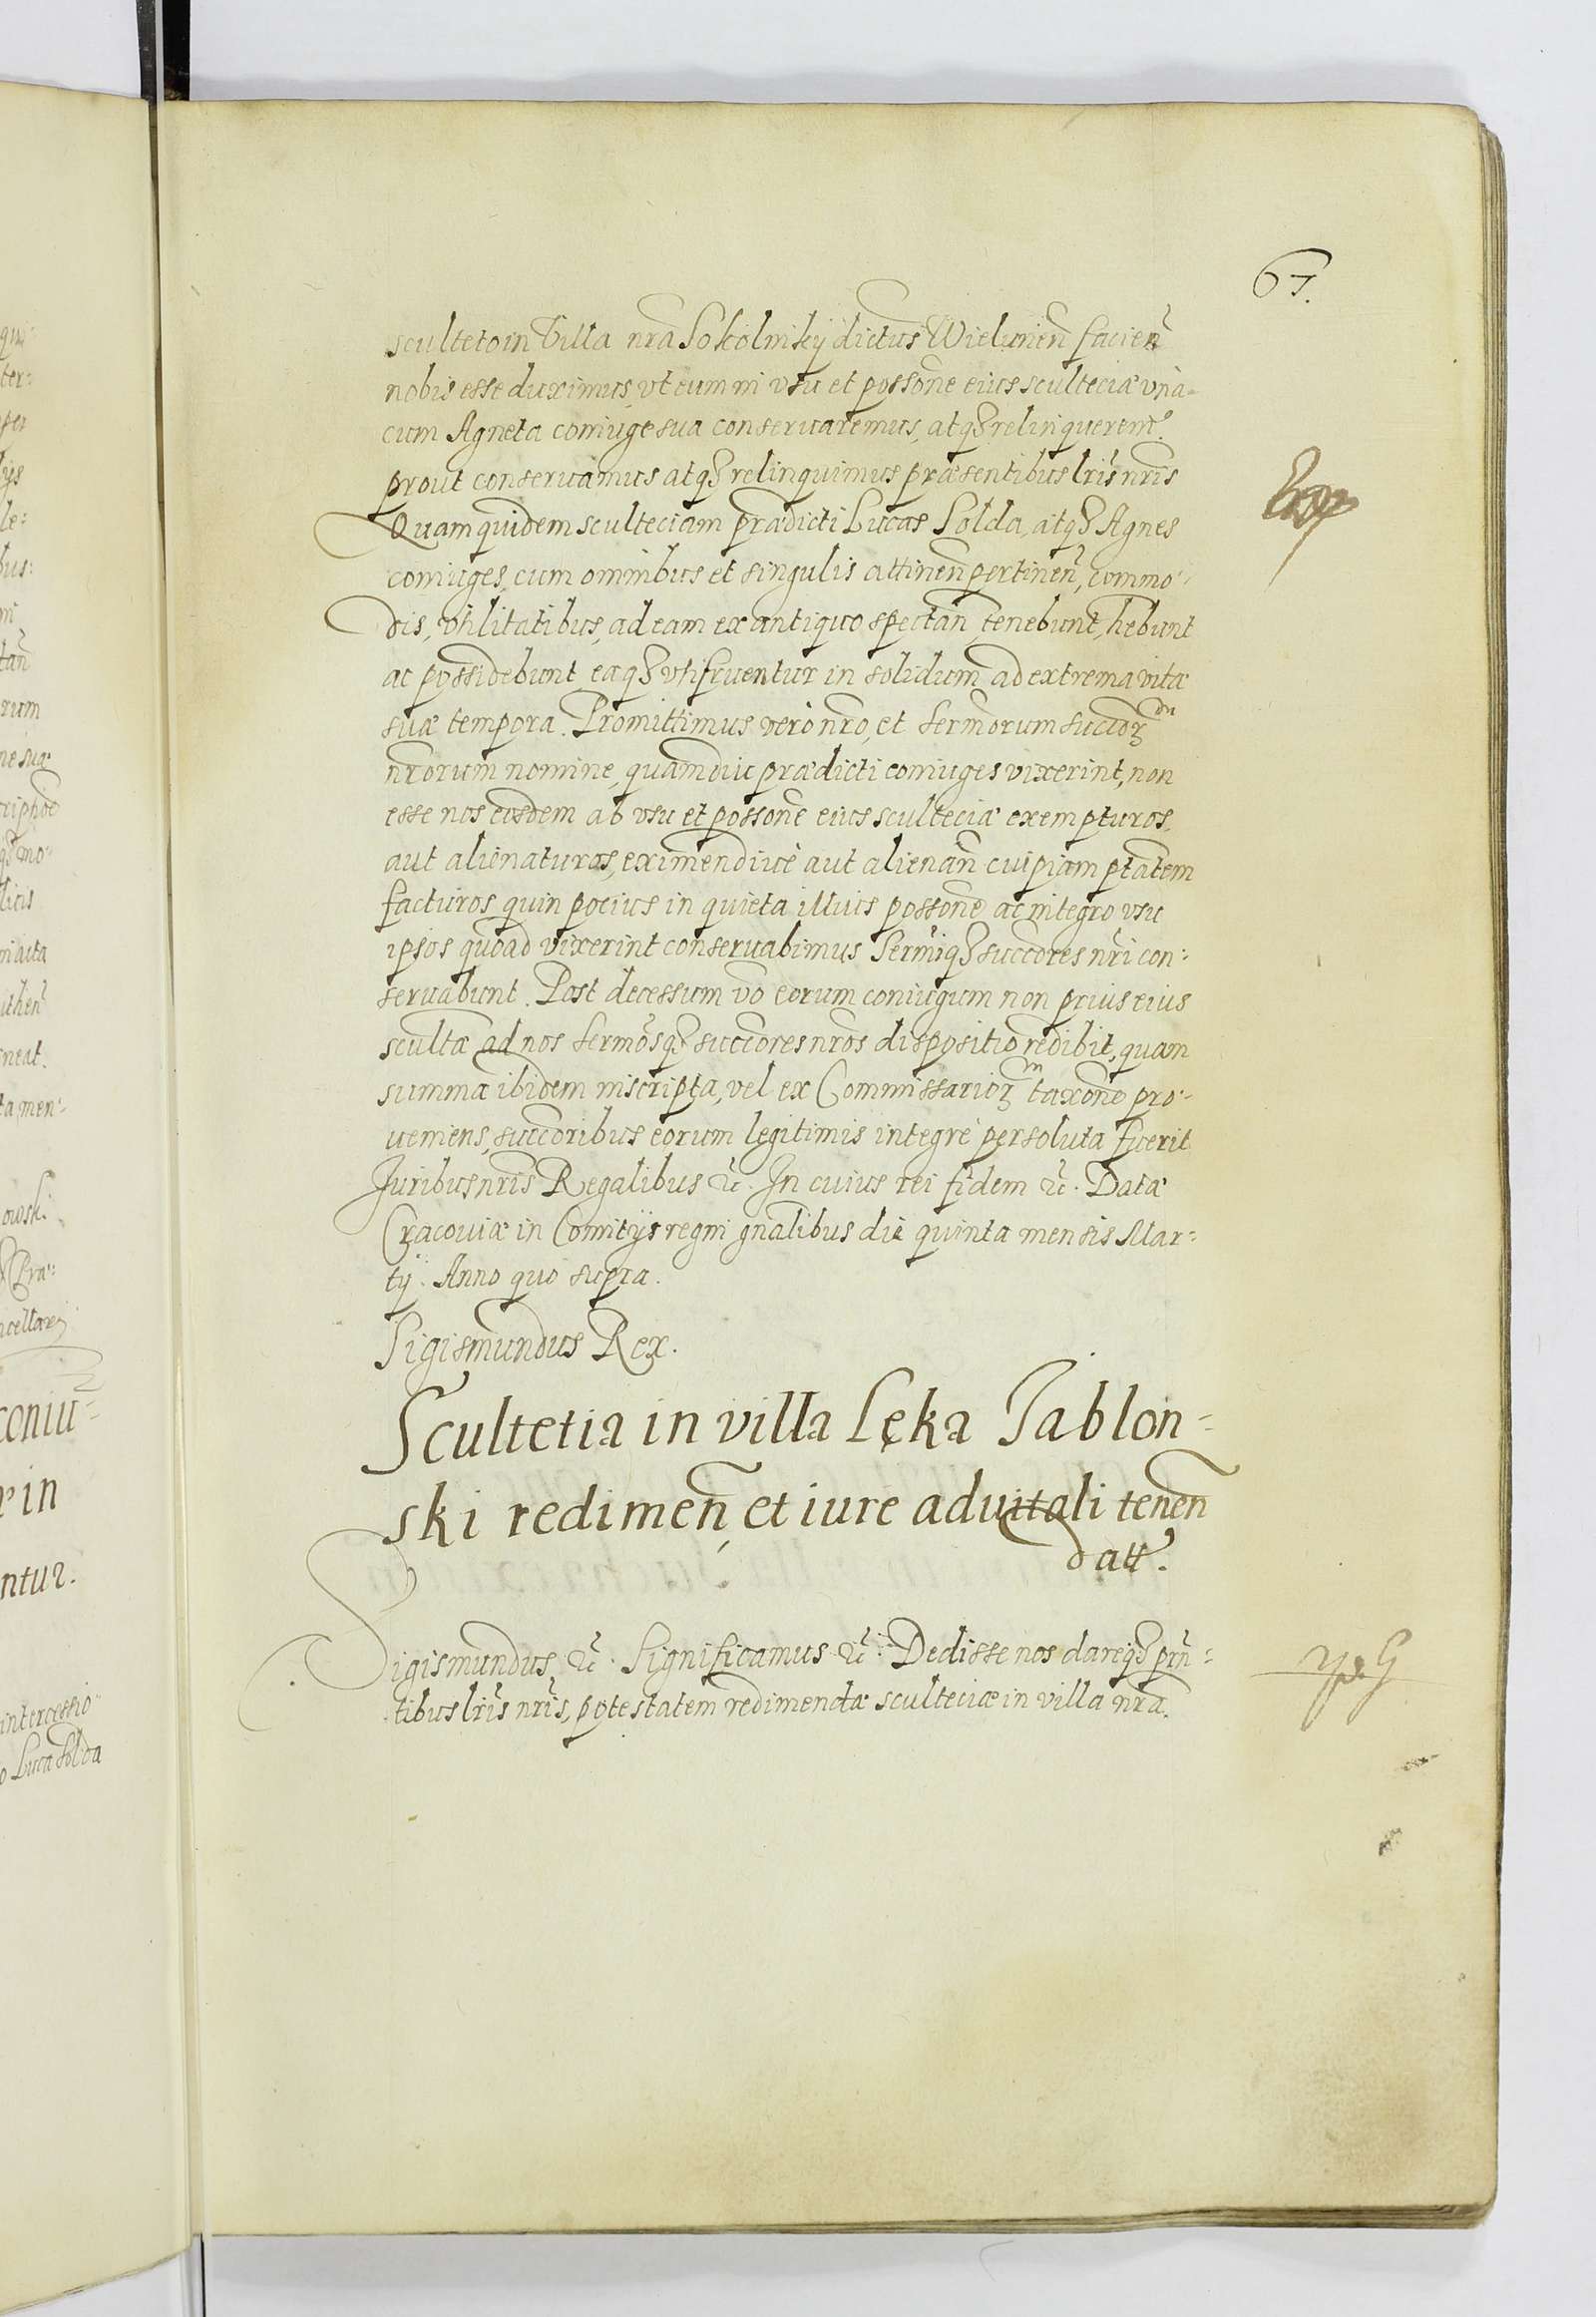 67.
sculteto in Villa nrã Sokolniky dictus Wielunen̄ facien̄
nobis esse duximus, vt eum in vsu et possone eius sculteciæ vnà=
cum Agneta coniuge sua conseruaremus, atqʒ relinqueremꝰ.
prout conseruamus atqʒ relinquimus præsentibus lris nris
Quam quidem sculteciam prædicti Lucas Solda, atqʒ Agnes
coniuges, cum omnibus et singulis attinen̄ pertinen̄, commo-
dis, vtilitatibus, ad eam ex antiquo spectan̄, tenebunt, hēbunt
ac possidebunt eaqʒ vtifruentur in solidum ad extrema vitæ
suæ tempora. Promittimus verò nro, et Sermorum succor̄
nrorum nomine, quamdiu prædicti coniuges vixerint, non
esse nos eosdem ab vsu et possone eius sculteciæ exempturos,
aut alienaturos, eximendiue aut alienan̄ cuipiam ptatem
facturos quin pocius in quieta illius possone ac integro vsu
ipsos quoad vixerint conseruabimus Sermiqʒ succores nri con=
seruabunt. Post decessum vo eorum coniugum non prius eius
scultæ ad nos Sermosqʒ succores nros dispositio redibit, quam
summa ibidem inscripta, vel ex Commissarior̄ taxone pro-
ueniens, succoribus eorum legitimis integrè persoluta fuerit
Juribus nris Regalibus &c. In cuius rei fidem &c. Datæ
Cracouiæ in Comitijs regni gnalibus die quinta mensis Mar=
tij. Anno quo supra.
Sigismundus Rex.
Scultetia in villa Lęka Jablon=
ski redimen̄, et iure aduitali tenen̄
datꝰ.
Sigismundus &c. Significamus &c. Dedisse nos dareqʒ prn̄=
tibus lris nris, potestatem redimendæ sculteciæ in villa nrã.